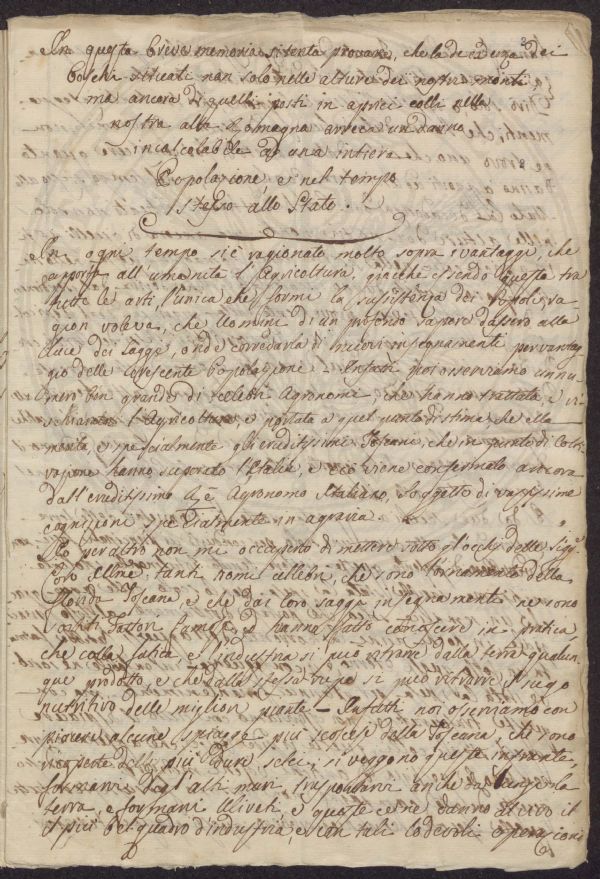 In questa breve memoria si tenta provare, che la decadenza dei
boschi situati non solo nelle alture dei nostri monti
ma ancora di quelli posti in aprici colli nella
nostra alta Romagna arreca un danno
incalcolabile ad una intiera
Popolazione, e nel tempo
stesso allo Stato.
In ogni tempo si è ragionato molto sopra i vantaggi, che
apporta all'umanità l'Agricoltura, giacché essendo questa tra
tutte le arti, l'unica che formi la sussistenza dei Popoli, ra
gion voleva, che Uomini di un profondo sapere dassero alla
luce dei saggi, onde corredarla di nuovi insegnamenti per vantag
gio della crescente Popolazione. Infatti noi osserviamo un nu
mero ben grande di celebri Agronomi, che hanno trattata, e
l'Agricoltura, e portata a quel punto di stima, che ella
merita, e specialmente gli eruditissimi Toscani, che in punto di Colti
vazione hanno superato l'Italia, e ciò viene confermato ancora
dall'eruditissimo Agronomo Italiano, Soggetto di vastissime
cognizioni specialmente in agraria.
Io peraltro non mi occuperò di mettere sotto gl'occhj delle Sigre
Loro Ellme tanti nomi cellebri, che sono l'ornamento della
Florida Toscana, e che dai loro saggi insegnamenti ne sono
Fattori famosi, ed hanno fatto conoscere in pratica,
che colla fatica, e l'industria si può ritrarre dalla terra qualun
que prodotto, e che dalla stessa rupe si può ritrarre il sugo
nutritivo delle migliori piante - Infatti noi osserviamo con
piacere alcune spiagge più scoscese della Toscana, che sono
ricoperte delle più dure selci, si veggono queste infrante,
formarvi degl'alti muri, trasportarvi anche da lungi la
terra, e formarvi Uliveti, e queste ci danno al vivo il
il più bel quadro d'industria, e con tali lodevoli operazioni